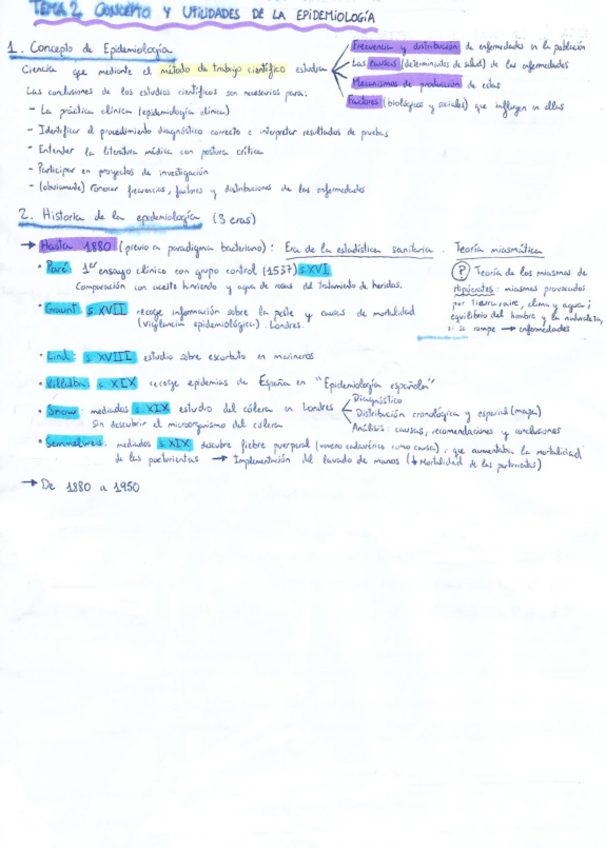 TEMA 2. CONCEPTO Y UTILIDADES DE LA EPIDEMIOLOGÍA
1. Concepto de Epidemiología
Ciencia que mediante el método de trabajo científico estudia
Frecuencia y distribución de enfermedades en la población
Las causas (determinantes de salud) de las enfermedades
Mecanismos de producción de estas
Factores (biológicos y sociales) que influyen en ellas
Las conclusiones de los estudios científicos son necesarios para:
- La práctica clínica (epidemiología clínica)
- Identificar el procedimiento diagnóstico correcto e interpretar resultados de pruebas
- Entender la literatura médica con postura crítica
- Participar en proyectos de investigación
- (obviamente) conocer frecuencias, factores y distribuciones de las enfermedades
2. Historia de la epidemiología (3 eras)
→ Hasta 1880 (previo a paradigma bacteriano): Era de la estadística sanitaria. Teoría miasmática
• Paré: 1er ensayo clínico con grupo control (1537) s.XVI
Comparación con aceite hirviendo y agua de rosas del tratamiento de heridas.
(P) Teoría de los miasmas de
Hipócrates: miasmas provocados
por tierra, aire, clima y agua;
equilibrio del hombre y la naturaleza,
si se rompe → enfermedades
• Graunt: s XVII recoge información sobre la peste y causas de mortalidad
(vigilancia epidemiológica). Londres.
• Lind: s XVIII estudio sobre escorbuto en marineros
• Villalba: s XIX recoge epidemias de España en "Epidemiología española"
• Snow: mediados s.XIX estudio del cólera en Londres
Sin descubrir el microorganismo del cólera
Diagnóstico
Distribución cronológica y espacial (mapa)
Análisis: causas, recomendaciones y conclusiones
• Semmelweis: mediados s.XIX descubre fiebre puerperal (veneno cadavérico como causa), que aumentaba la mortalidad
de las parturientas → Implementación del lavado de manos (↓ Mortalidad de las parturientas)
→ De 1880 a 1950